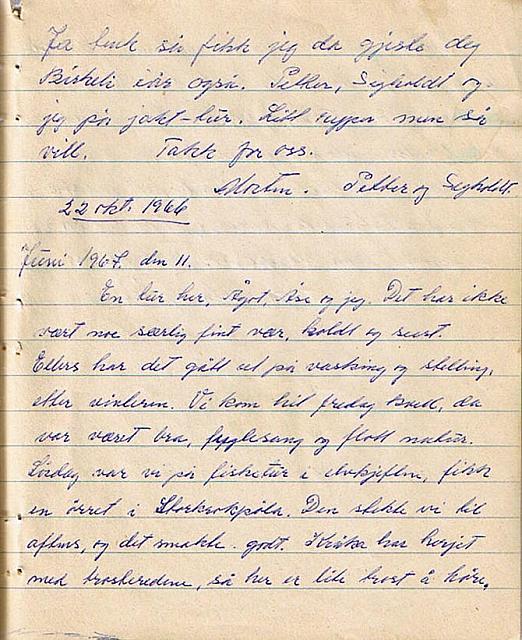 Ja tenk så fikk jeg da gjeste deg
Birkeli iår også. Petter, Sigholdt og
jeg på jakt-tur. Litt ryper men så
vill. Takk for oss.
Morten. Petter og Sigholdt.
22 okt. 1966
Juni 1967. den 11.
En tur her, Ågot, Åse og jeg. Det har ikke
vært noe særlig fint vær, koldt og surt.
Ellers har det gått ut på vasking og stelling,
etter vinteren. Vi kom hit fredag kveld, da
var været bra, fuglesang og flott natur.
Lørdag var vi på fisketur i elvkjeften, fikk
en ørret i. Den stekte vi til
aftens, og det smakte godt. Kråka har herjet
med trosteredene, så her er lite trost å høre.